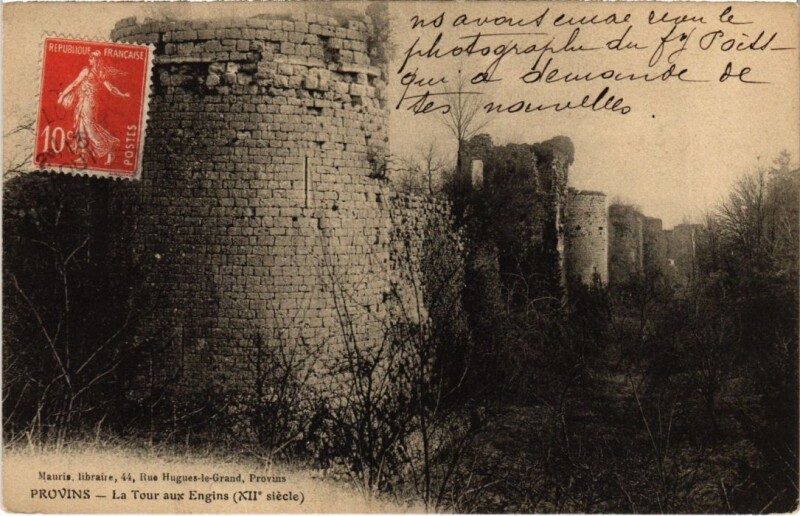 ns avons
photographe du
qui a demandé de
tes nouvelles.
REPUBLIQUE FRANÇAISE
10c
POSTES
Mauris, libraire, 44, Rue Hugues-le-Grand, Provins
PROVINS — La Tour aux Engins (XIIe siècle)